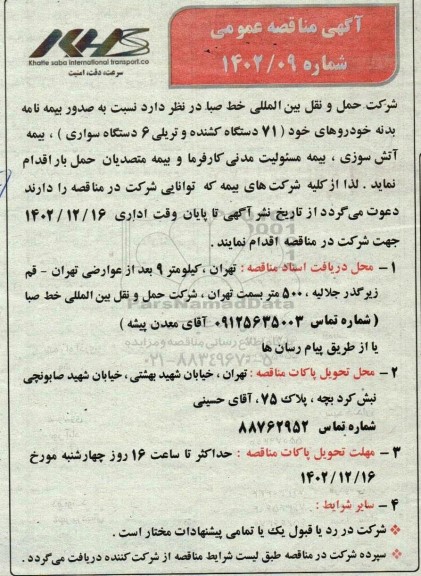 آگهی مناقصه عمومی
شماره ۱۴۰۲/۰۹
KHS
Khatte saba international transport.co
سرعت، دقت، امنیت
شرکت حمل و نقل بین المللی خط صبا در نظر دارد نسبت به صدور بیمه نامه
بدنه خودروهای خود (۷۱ دستگاه کشنده و تریلی ۶ دستگاه سواری) ، بیمه
آتش سوزی ، بیمه مسئولیت مدنی کارفرما و بیمه متصدیان حمل بار اقدام
نماید . لذا از کلیه شرکت های بیمه که توانایی شرکت در مناقصه را دارند
دعوت می‌گردد از تاریخ نشر آگهی تا پایان وقت اداری ۱۴۰۲/۱۲/۱۶
جهت شرکت در مناقصه اقدام نمایند .
۱- محل دریافت اسناد مناقصه : تهران ، کیلومتر ۹ بعد از عوارضی تهران - قم
زیرگذر جلالیه ، ۵۰۰ متر بسمت تهران ، شرکت حمل و نقل بین المللی خط صبا
(شماره تماس ۰۹۱۲۵۶۳۵۰۰۳ آقای معدن پیشه )
یا از طریق پیام رسان ها
۲- محل تحویل پاکات مناقصه : تهران ، خیابان شهید بهشتی ، خیابان شهید صابونچی
نبش کرد بچه ، پلاک ۷۵ ، آقای حسینی
شماره تماس ۸۸۷۶۲۹۵۲
۳- مهلت تحویل پاکات مناقصه : حداکثر تا ساعت ۱۶ روز چهارشنبه مورخ
۱۴۰۲/۱۲/۱۶
۴- سایر شرایط :
شرکت در رد یا قبول یک یا تمامی پیشنهادات مختار است .
سپرده شرکت در مناقصه طبق لیست شرایط مناقصه از شرکت کننده دریافت می‌گردد .
ParsNamadData
۰۲۱-۸۸۳۴۹۶۷۰-۵